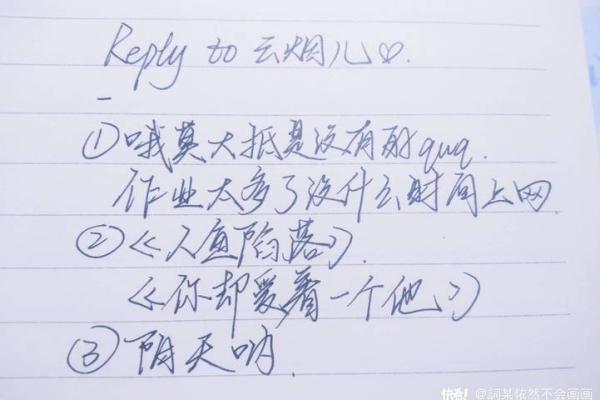 Reply to 云烟儿♡.
-
①哦莫大抵是没有耐quq.
作业太多了没什么时间上网
②《人鱼陷落》.
《你却爱着一个他》
③阴天呐.
快看! @詞某依然不会画画